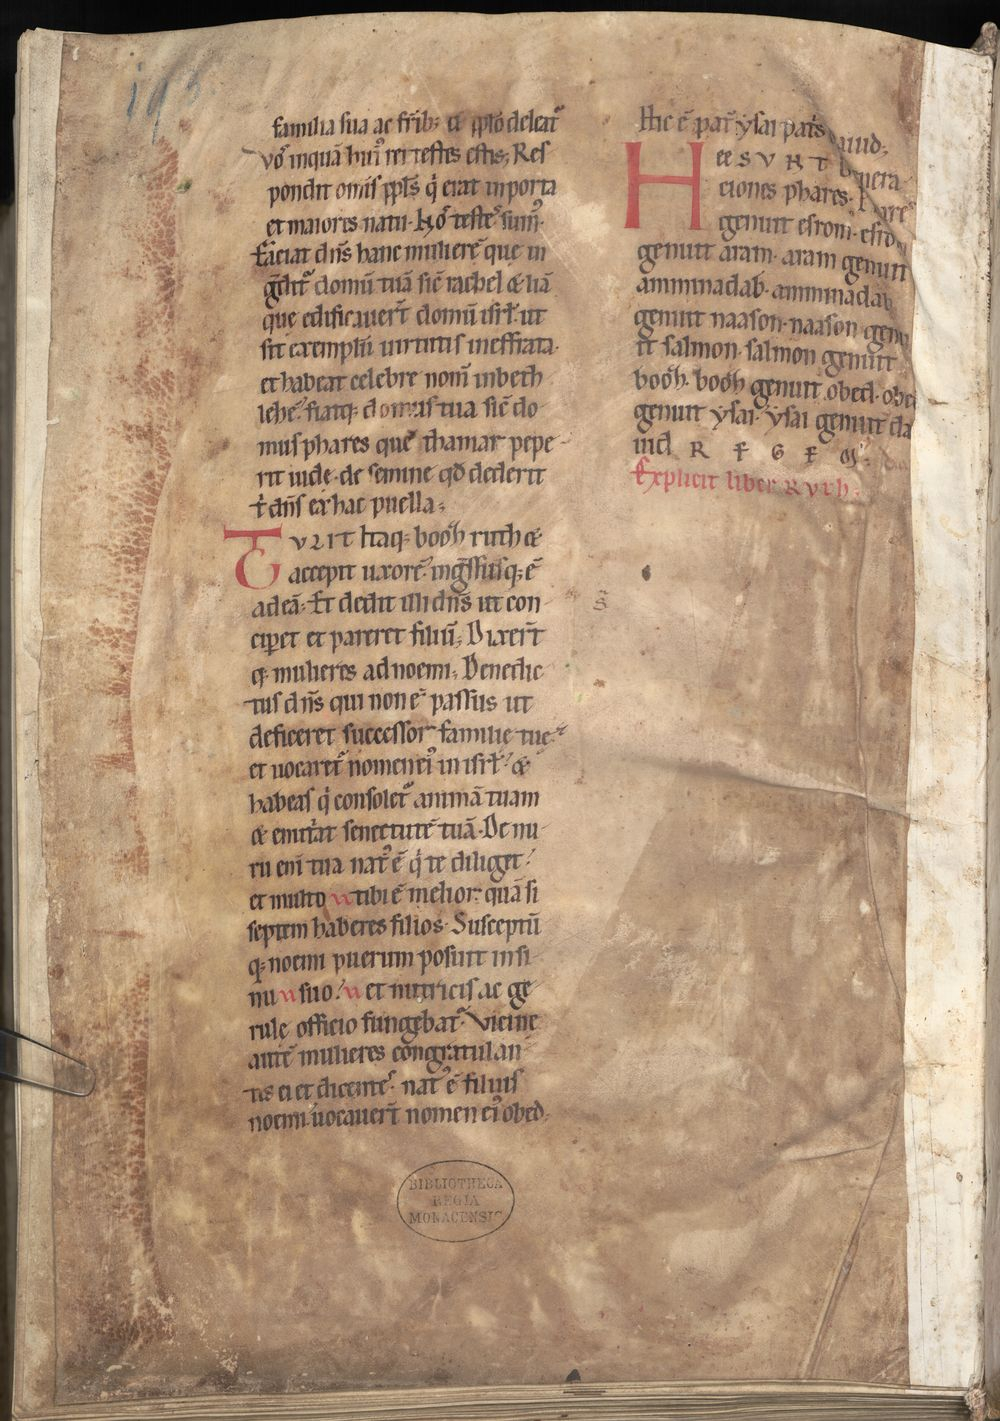 195
familia sua ac frīb; & pplo deleat᷑
vos inquā hui᷒ rei testes estis; Res
pondit omīs ppl̄s q̇ erat in porta
et maiores natu· Nos testes sum᷒·
Faciat dn̄s hanc mulierē que in
g̅dit᷑ domū tuā sic̄ rachel & liā
que edificauer̄t domū isrl̄· ut
sit exemplū uirtutis in effrata·
et habeat celebre nom̄ in beth
lehē· fiatq; domus tua sic̄ do
mus phares quē thamar pepe
rit iude· de semine qd̄ dederit
t̄ dn̄s ex hac puella;
TVLIT Itaq; booh ruth &
accepit uxorē· ing̅ssusq; ē
ad eā; Et dedit illi dn̄s ut con
ciꝑet et pareret filiū; Dixer̄t
q; mulieres ad noemi; Benedic
tus dn̄s qui non ē passus ut
deficeret successor familie tue·
et uocaret᷑ nomen ei᷒ in isrl̄· &
habeas q̇ consolet᷑ animā tuam
& enutriat senectutē tuā· De nu
ru eni tua nat᷒ ē q̇ te diliget·
et multo tibi ē melior quā si
septem haberes filios· Susceptū
q; noemi puerum posuit in si
nu suo· et nutricis ac ge
rule officio fungebat᷑· Vicine
autē mulieres congratulan
tes ei et dicentes· nat᷒ ē filius
noemi· uocauer̄t nomen ei᷒ obed·
Hic ē pat̄ ysai pat̄s dauid;
HEe SVNT
ciones phares·
genuit esrom· esro
genuit aram· aram genuit
aminadab· aminadab
genuit naason· naason genu
it salmon· salmon genuit
booh· booh genuit obed· obed
genuit ysai· ysai genuit da
uid
Explicit liber Ruth;
BIBLIOTHECA
REGIA
MONACENSIS